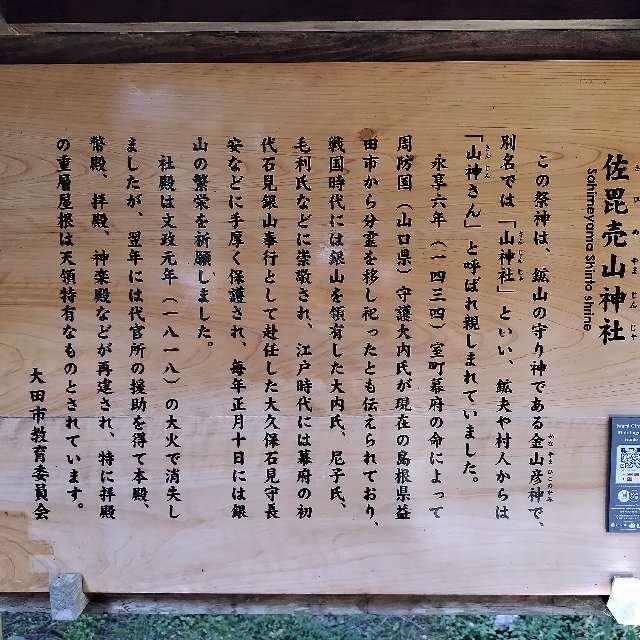 佐毘売山神社
さひめやまじんじゃ
Sahimeyama Shinto shrine
この祭神は、鉱山の守り神である金山彦神で、
かなやまひこのかみ
別名では「山神社」といい、鉱夫や村人からは
さんじんじゃ
「山神さん」と呼ばれ親しまれていました。
さんじん
永享六年(一四三四)室町幕府の命によって
周防国(山口県)守護大内氏が現在の島根県益
田市から分霊を移し祀ったとも伝えられており、
戦国時代には銀山を領有した大内氏、尼子氏、
毛利氏などに崇敬され、江戸時代には幕府の初
代石見銀山奉行として赴任した大久保石見守長
安などに手厚く保護され、毎年正月十日には銀
山の繁栄を祈願しました。
社殿は文政元年(一八一八)の大火で消失し
ましたが、翌年には代官所の援助を得て本殿、
幣殿、拝殿、神楽殿などが再建され、特に拝殿
の重層屋根は天領特有なものとされています。
大田市教育委員会